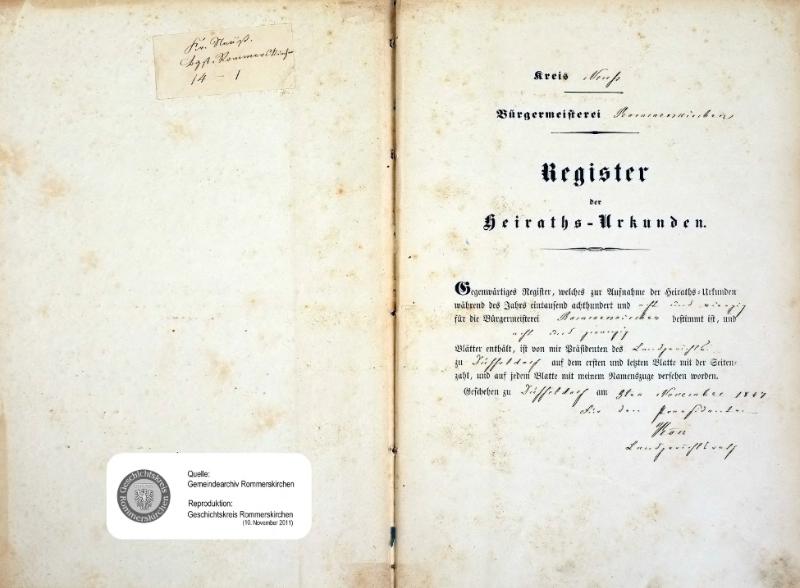 Kr. Neuß.
Bgst. Rommerskirchen
14 – 1
Kreis Neuß
Bürgermeisterei Rommerskirchen
Register
der
Heiraths-Urkunden.
Gegenwärtiges Register, welches zur Aufnahme der Heiraths-Urkunden
während des Jahrs eintausend achthundert und acht und vierzig
für die Bürgermeisterei Rommerskirchen bestimmt ist, und
acht und zwanzig
Blätter enthält, ist von mir Präsidenten des Landgerichts
zu Düsseldorf auf dem ersten und letzten Blatte mit der Seiten-
zahl, und auf jedem Blatte mit meinem Namenszuge versehen worden.
Geschehen zu Düsseldorf am 9ten November 1847
Für den Praesidenten
Landgerichtsrath
Geschichtskreis
Rommerskirchen
Quelle:
Gemeindearchiv Rommerskirchen
Reproduktion:
Geschichtskreis Rommerskirchen
(10. November 2011)